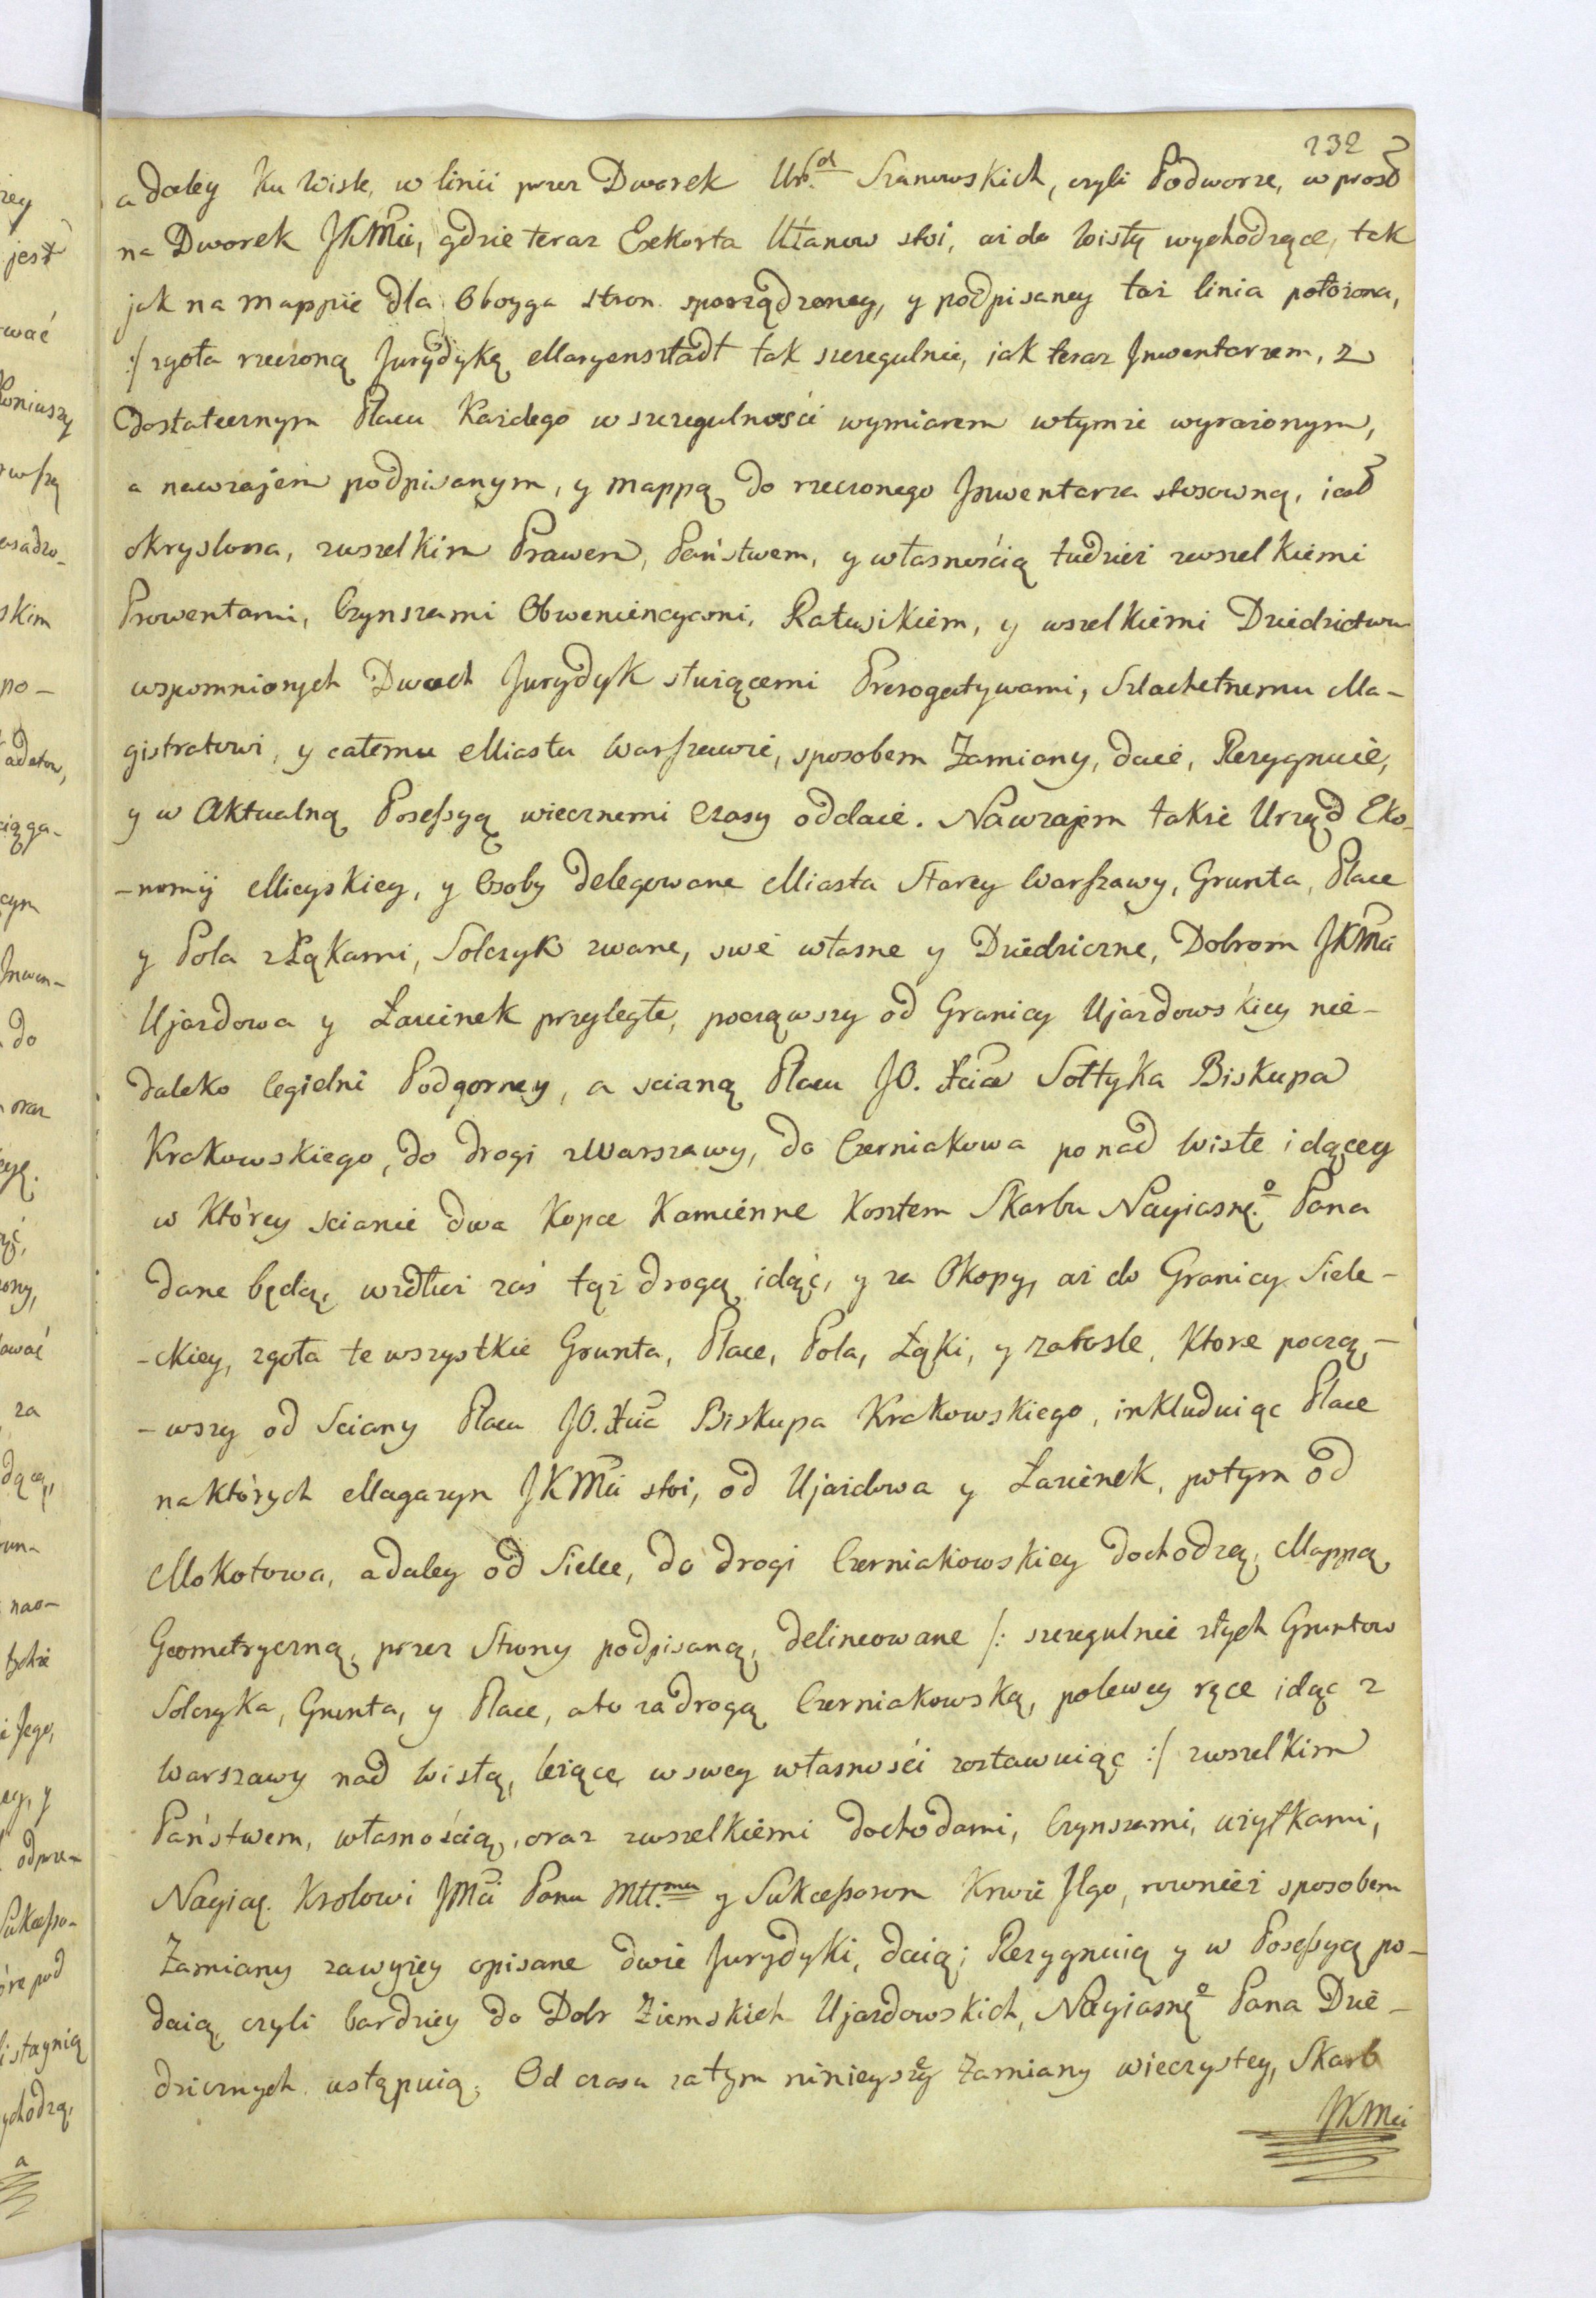 232
a daley ku Wiśle, w linii przez Dworek Ur: Szanowskich, czyli Podworze, w prost
na Dworek JKMci, gdzie teraz Exkorta Ułanow stoi, aż do Wisły wychodzące, tak
jak na mappie dla Oboyga stron sporządzoney, y podpisaney taż linia położona,
:/ zgoła rzeczoną Jurydykę Maryensztadt tak szczegulnie, jak teraz Jnwentarzem, z
dostatecznym Placu Każdego w szczegulności wymiarem w tymże wyrażonym,
a nawzajem podpisanym, y mappą do rzeczonego Jnwentarza stosowną, jest
okryslona, zwszelkim Prawem, Państwem, y własnością tudzież zwszelkiemi
Prowentami, Czynszami Obwencyami, Ratuszikiem, y wszelkiemi Dziedzictwu
wspomnionych Dwoch Jurydyk służącemi Prerogatywami, Szlachetnemu Ma-
gistratowi, y całemu Miastu Warszawie, sposobem Zamiany, daie, Rezygnuie,
y w Aktualną Possessyą wiecznemi Czasy oddaie. Nawzajem także Urząd Eko-
-nomij Mieyskiey, y Osoby delegowane Miasta Starey Warszawy, Grunta, Place
y Pola z Łąkami, Solczyk zwane, swe własne y Dziedziczne, Dobrom JKMci
Ujazdowa y Łazienek przyległe, począwszy od Granicy Ujazdowskiey nie-
daleko Cegielni Podgorney, a scianą Placu JO. Xcia Sołtyka Biskupa
Krakowskiego, do drogi z Warszawy, do Czerniakowa ponad Wisłe idącey
w Którey scianie dwa Kopce Kamienne Kosztem Skarbu Nayiasnẹ.º Pana
dane będą, wzdłuż zaś tąż drogą idąc, y za Okopy, aż do Granicy Siele-
-ckiey, zgoła te wszystkie Grunta, Place, Pola, Łąki, y zarosle, Ktore począ-
-wszy od Sciany Placu JO. Xcia Biskupa Krakowskiego, inkluduiąc Place
na których Magazyn JKMci stoi, od Ujazdowa y Łazienek, potym od
Mokotowa, a daley od Sielec, do drogi Czerniakowskiey dochodzą, Mappą
Geometryczną, przez Strony podpisaną, delineowane /: szczegulnie z tych Gruntow
Solczyka, Grunta, y Place, a to za drogą Czerniakowską, po lewey ręce idąc z
Warszawy nad Wisłą, leżące, w swey własności zostawuiąc :/ zwszelkim
Państwem, własnością, oraz zwszelkiemi dochodami, Czynszami, użytkami,
Nayiaś. Krolowi JMci Panu Mtt.mu y Sukcessorom Krwie Jego, rownież sposobem
Zamiany zawyżey opisane dwie Jurydyki, daią, Rezygnuią y w Possessyą po-
daią, czyli bardziey do Dobr Ziemskich Ujazdowskich, Nayiasnẹº Pana Dzie-
dzicznych ustępuią. Od czasu zatym ninieyszey Zamiany wieczystey, Skarb
JKMci